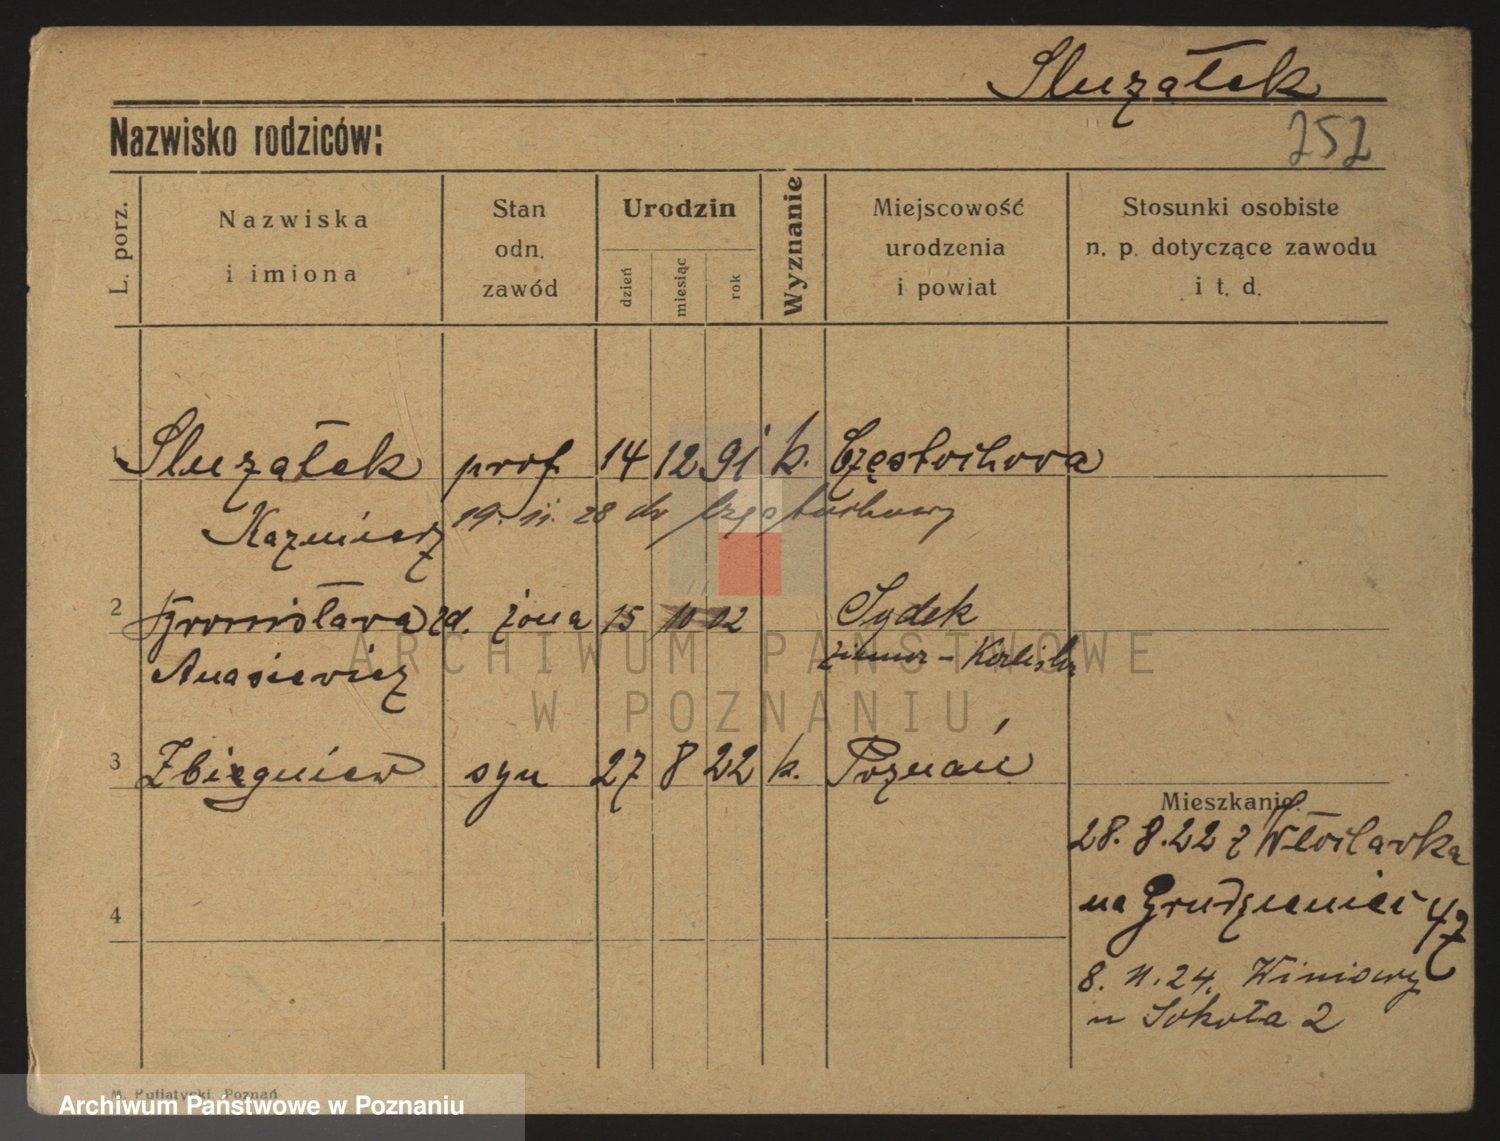 Sluzałek
Nazwisko rodziców:
252
L. porz.
Nazwiska
i imiona
Stan
odn.
zawód
Urodzin
dzień
miesiąc
rok
Wyznanie
Miejscowość
urodzenia
i powiat
Stosunki osobiste
n. p. dotyczące zawodu
i t. d.
1 Sluzałek prof. 14 12 91 k. Częstochowa
Kazmierz 19. 11. 28 do Częstochowy
2 Bronisława zd. żona 15 10 02
Anasiewicz
3 Zbigniew syn 27 8 22 k. Poznań
Mieszkanie:
28. 8. 22 z Włocławka
na Grudzieniec 47
8. 11. 24. Winiary
u Sokoła 2
4
ARCHIWUM PAŃSTWOWE
W POZNANIU
M. Putiatycki, Poznań
Archiwum Państwowe w Poznaniu